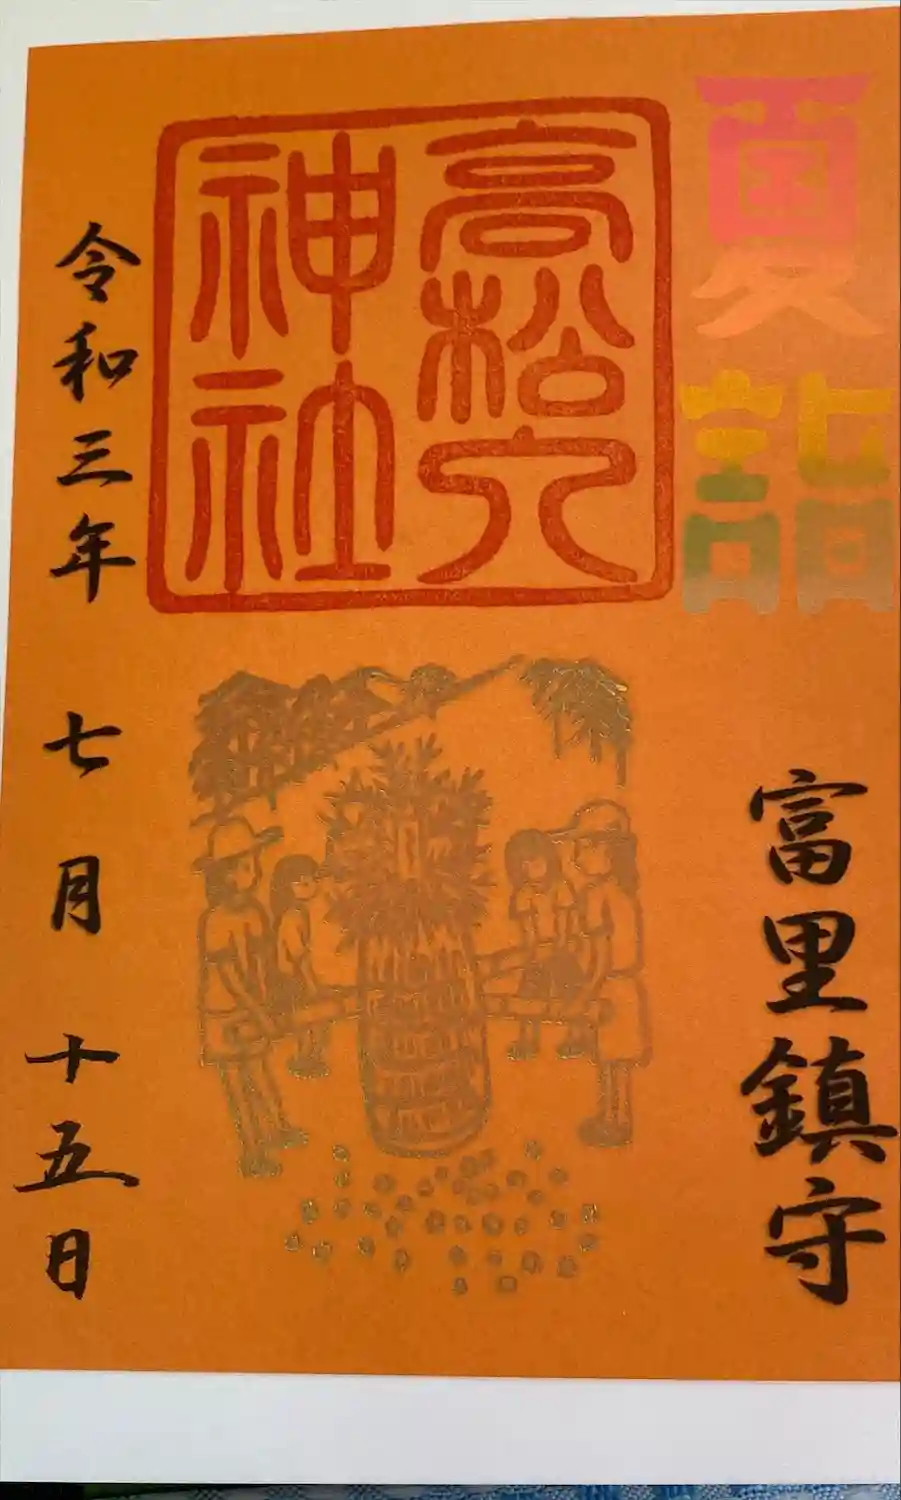 夏詣
富里鎮守
高松入
神社
令和三年 七月 十五日